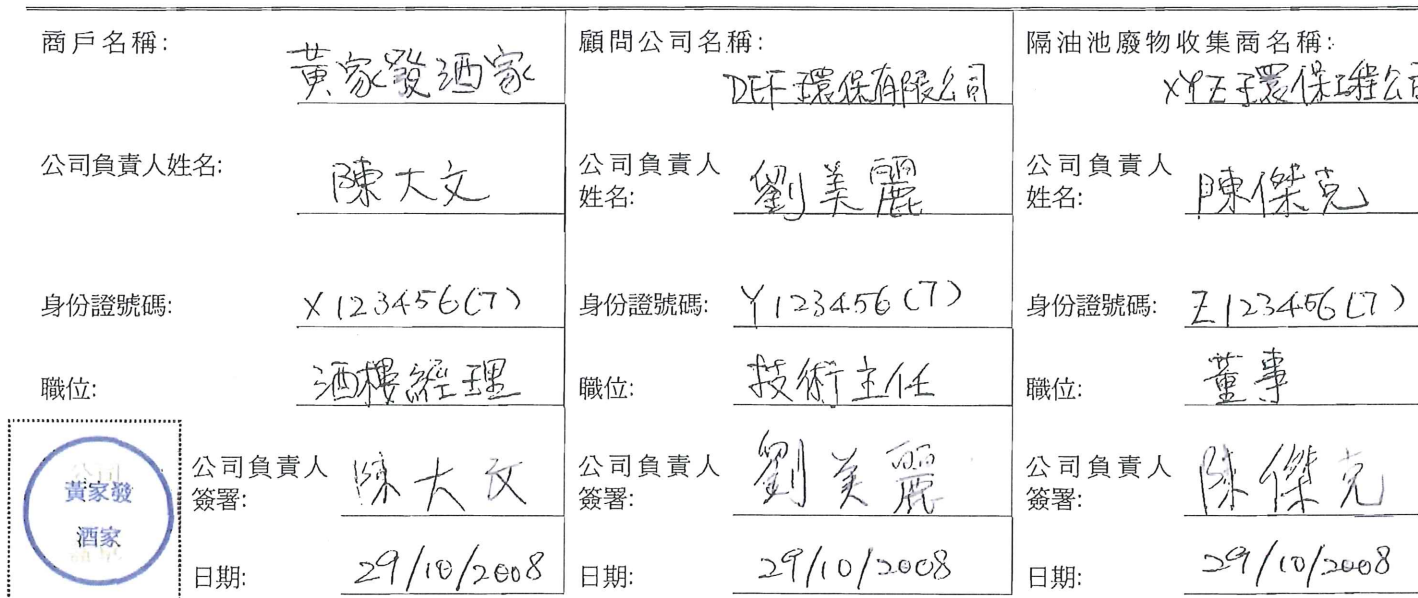 商戶名稱: 黃家發酒家
公司負責人姓名: 陳大文
身份證號碼: X123456(7)
職位: 酒樓經理
黃家發
酒家
公司負責人
簽署: 陳大文
日期: 29/10/2008
顧問公司名稱:
DEF環保有限公司
公司負責人
姓名: 劉美麗
身份證號碼: Y123456(7)
職位: 技術主任
公司負責人
簽署: 劉美麗
日期: 29/10/2008
隔油池廢物收集商名稱:
XYZ環保工程公司
公司負責人
姓名: 陳傑克
身份證號碼: Z123456(7)
職位: 董事
公司負責人
簽署: 陳傑克
日期: 29/10/2008